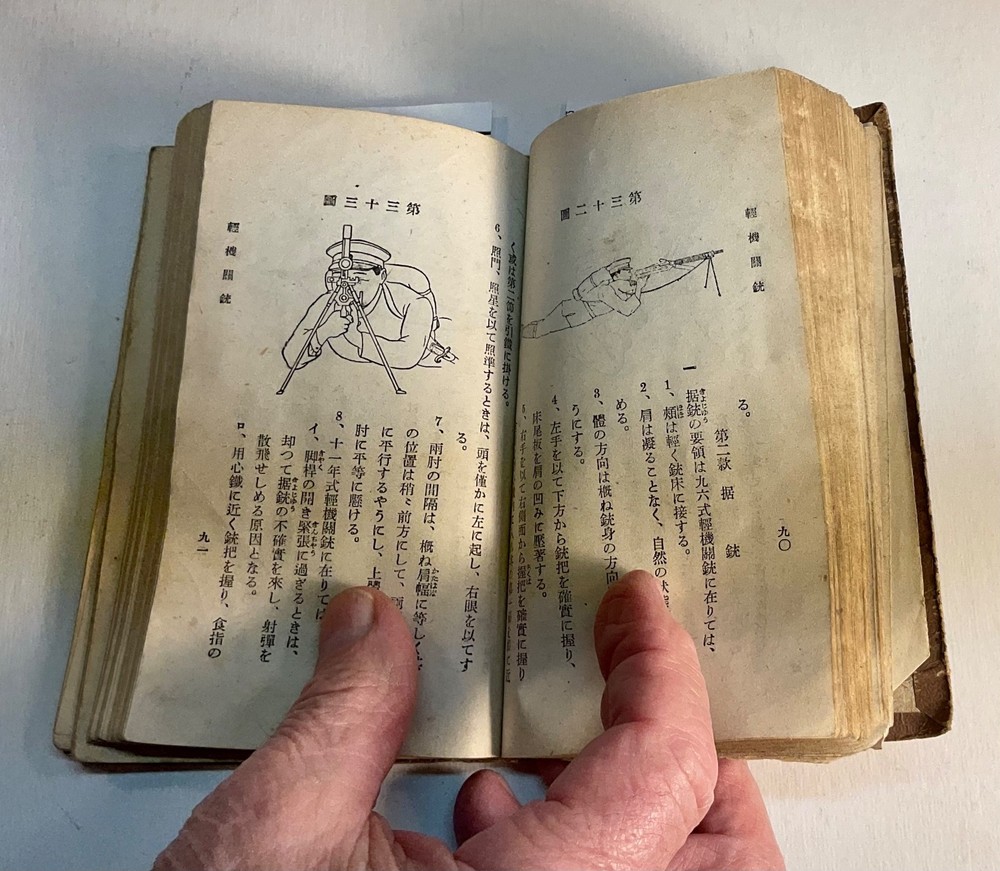 輕機關銃
第三十二圖
る。
第二款 据銃
一 据銃の要領は九六式輕機關銃に在りては、
1、頬は輕く銃床に接する。
2、肩は凝ることなく、自然の狀態
める。
3、體の方向は概ね銃身の方向
うにする。
4、左手を以て下方から銃把を確實に握り、
床尾板を肩の凹みに壓著する。
5、右手を以て右側面から握把を確實に握り
九〇
く或は第二節を引鐵に掛ける。
6、照門、照星を以て照準するときは、頭を僅かに左に起し、右眼を以てす
る。
7、兩肘の間隔は、概ね肩幅に等しく
の位置は稍〻前方にして、兩
に平行するやうにし、上體
肘に平等に懸ける。
8、十一年式輕機關銃に在りては
イ、脚桿の開き緊張に過ぎるときは、
却つて据銃の不確實を來し、射彈を
散飛せしめる原因となる。
ロ、用心鐵に近く銃把を握り、食指の
第三十三圖
輕機關銃
九一